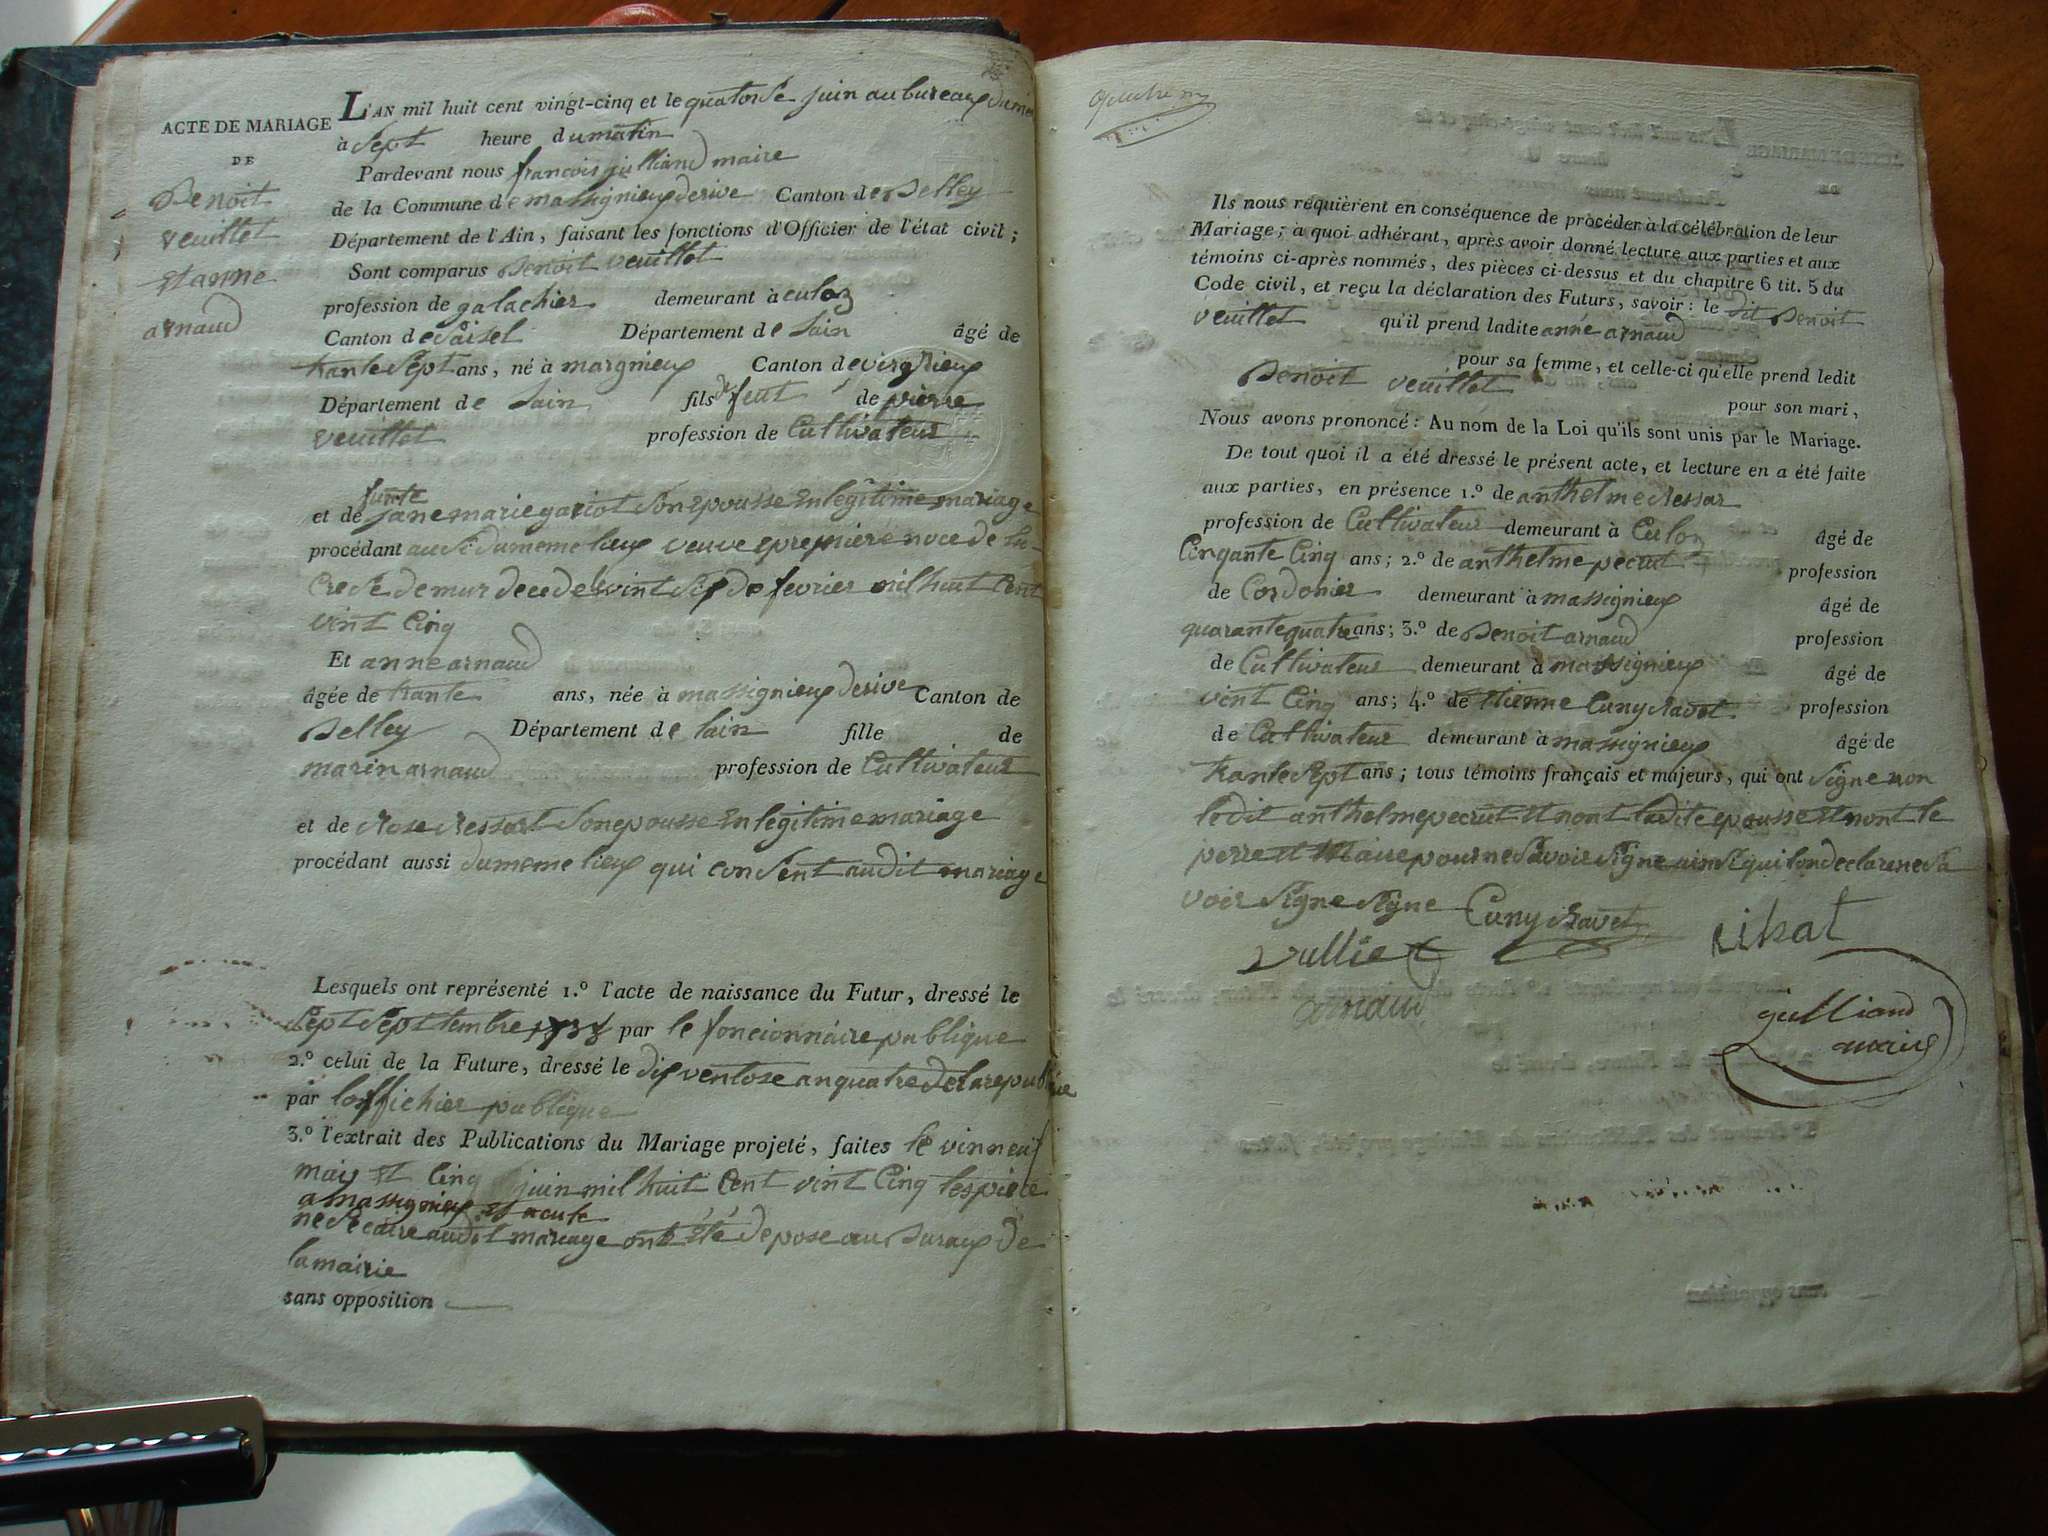 ACTE DE MARIAGE
DE
Benoit
veuillet
et anne
arnaud
L'AN mil huit cent vingt-cinq et le quatorse juin au bureaux
à sept heure du matin
Pardevant nous francois julliand maire
de la Commune de massignieux de rive Canton de Belley
Département de l'Ain, faisant les fonctions d'Officier de l'état civil ;
Sont comparus Benoit veuillet
profession de galachier demeurant à culoz
Canton de Saisel Département de lain âgé de
trante sept ans, né à margnieux Canton de virgnieux
Département de lain fils de feut de pierre
veuillet profession de Cultivateur
funte
et de jane marie gariot son epousse en legitime mariage
procédant aussi du meme lieux veuve epremiere noce de lu-
crese demur decede vint six de fevrier mil huit Cent
vint Cinq
Et anne arnaud
âgée de trante ans, née à massignieux de rive Canton de
Belley Département de lain fille de
marin arnaud profession de Cultivateur
et de Rose Ressart son epousse en legitime mariage
procédant aussi du meme lieux qui consent audit mariage
Lesquels ont représenté 1.º l'acte de naissance du Futur, dressé le
sept septtembre par le foncionnaire publique
2.º celui de la Future, dressé le dix ventose an quatre de la republique
par loffichier publique
3.º l'extrait des Publications du Mariage projeté, faites le vinneuf
mais et Cinq juin mil huit Cent vint Cinq les piece
a massignieux et a culo
nessecaire audit mariage ont été depose au buraux de
la mairie
sans opposition
Ils nous requièrent en conséquence de procéder à la célébration de leur
Mariage ; à quoi adhérant, après avoir donné lecture aux parties et aux
témoins ci-après nommés, des pièces ci-dessus et du chapitre 6 tit. 5 du
Code civil, et reçu la déclaration des Futurs, savoir : le dit Benoit
veuillet qu'il prend ladite anne arnaud
pour sa femme, et celle-ci qu'elle prend ledit
Benoit veuillet pour son mari,
Nous avons prononcé : Au nom de la Loi qu'ils sont unis par le Mariage.
De tout quoi il a été dressé le présent acte, et lecture en a été faite
aux parties, en présence 1.º de anthelme Ressar
profession de Cultivateur demeurant à Culoz âgé de
Cinqante Cinq ans ; 2.º de anthelme pecrut profession
de Cordonier demeurant à massignieux âgé de
quarante quatre ans ; 3.º de Benoit arnaud profession
de Cultivateur demeurant à massignieux âgé de
vint Cinq ans ; 4.º de etienne Cuny Ravet profession
de Cultivateur demeurant à massignieux âgé de
trante sept ans ; tous témoins français et majeurs, qui ont signe non
le dit anthelme pecrut et nont ladite epousse et nont le
perre et maire pour ne savoir signe ainsi qui lon declare ne sa
voir signe signe Cuny Ravet
vulliet
arnaud
julliand
maire